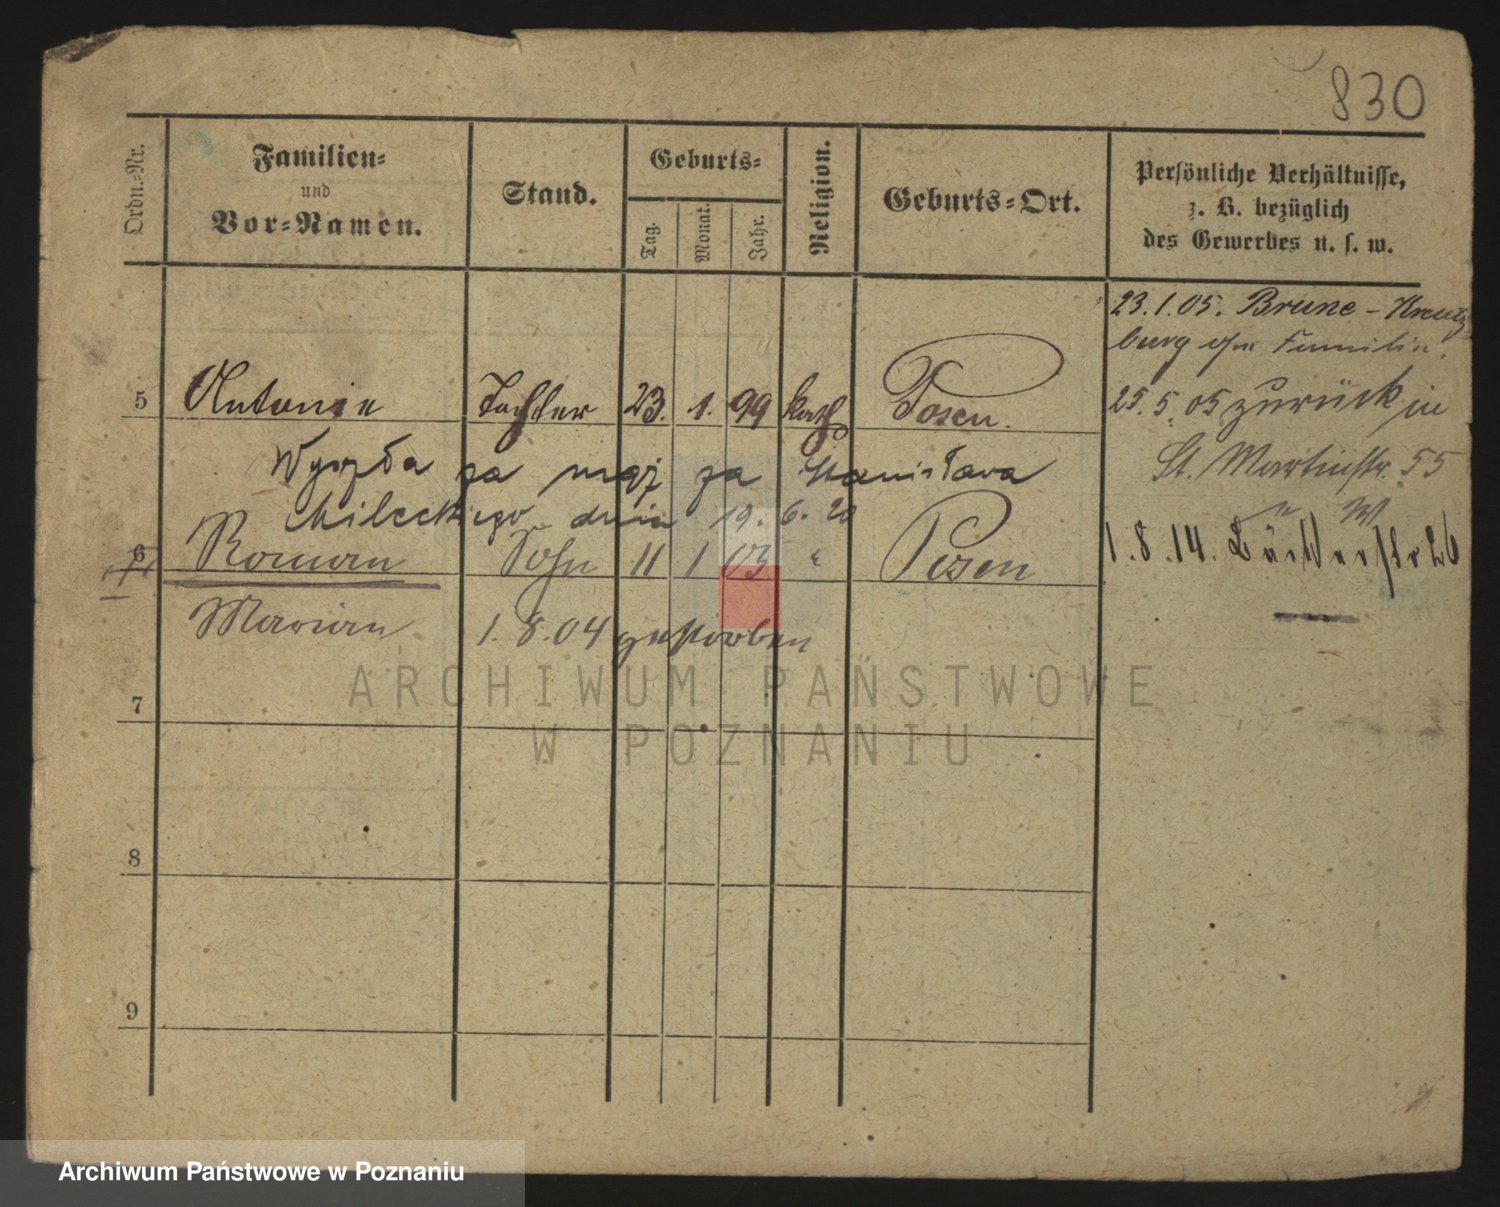 830
Ordn.-Nr.
Familien-
und
Vor-Namen.
Stand.
Geburts-
Tag.
Monat.
Jahr.
Religion.
Geburts-Ort.
Persönliche Verhältnisse,
z. B. bezüglich
des Gewerbes u. s. w.
23.1.05. Brune - Kreutz
burg Familie.
5 Antonie Tochter 23. 1. 99 kath Posen.
25.5.05 zurück in
St. Martinstr. 55
Wyszła za mąż za Stanisława
Mileckiego dnia 19.6.20
6 Roman Sohn 11 1 03 " Posen
1.8.14. 26
Marian 1.8.04 gestorben
7
8
9
ARCHIWUM PAŃSTWOWE
W POZNANIU
Archiwum Państwowe w Poznaniu